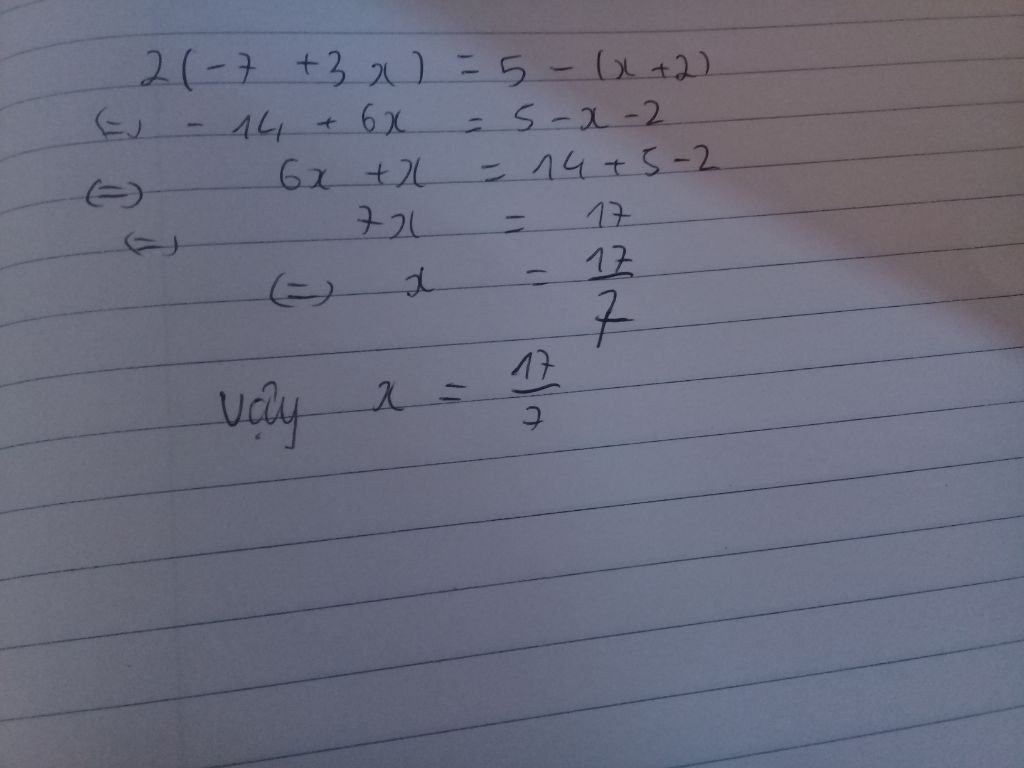 2(-7 +3x) = 5 - (x+2)
(=) - 14 + 6x = 5-x-2
(=) 6x +x = 14+5-2
(=) 7x = 17
(=) x = 17/7
Vậy x = 17/7